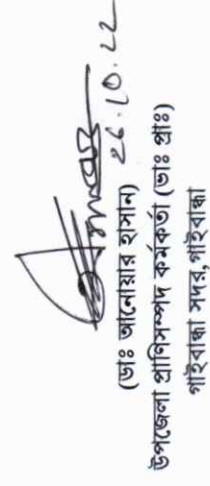 26.10.22
(ডাঃ আনোয়ার হাসান)
উপজেলা প্রাণিসম্পদ কর্মকর্তা (ভাঃ প্রাঃ)
গাইবান্ধা সদর, গাইবান্ধা